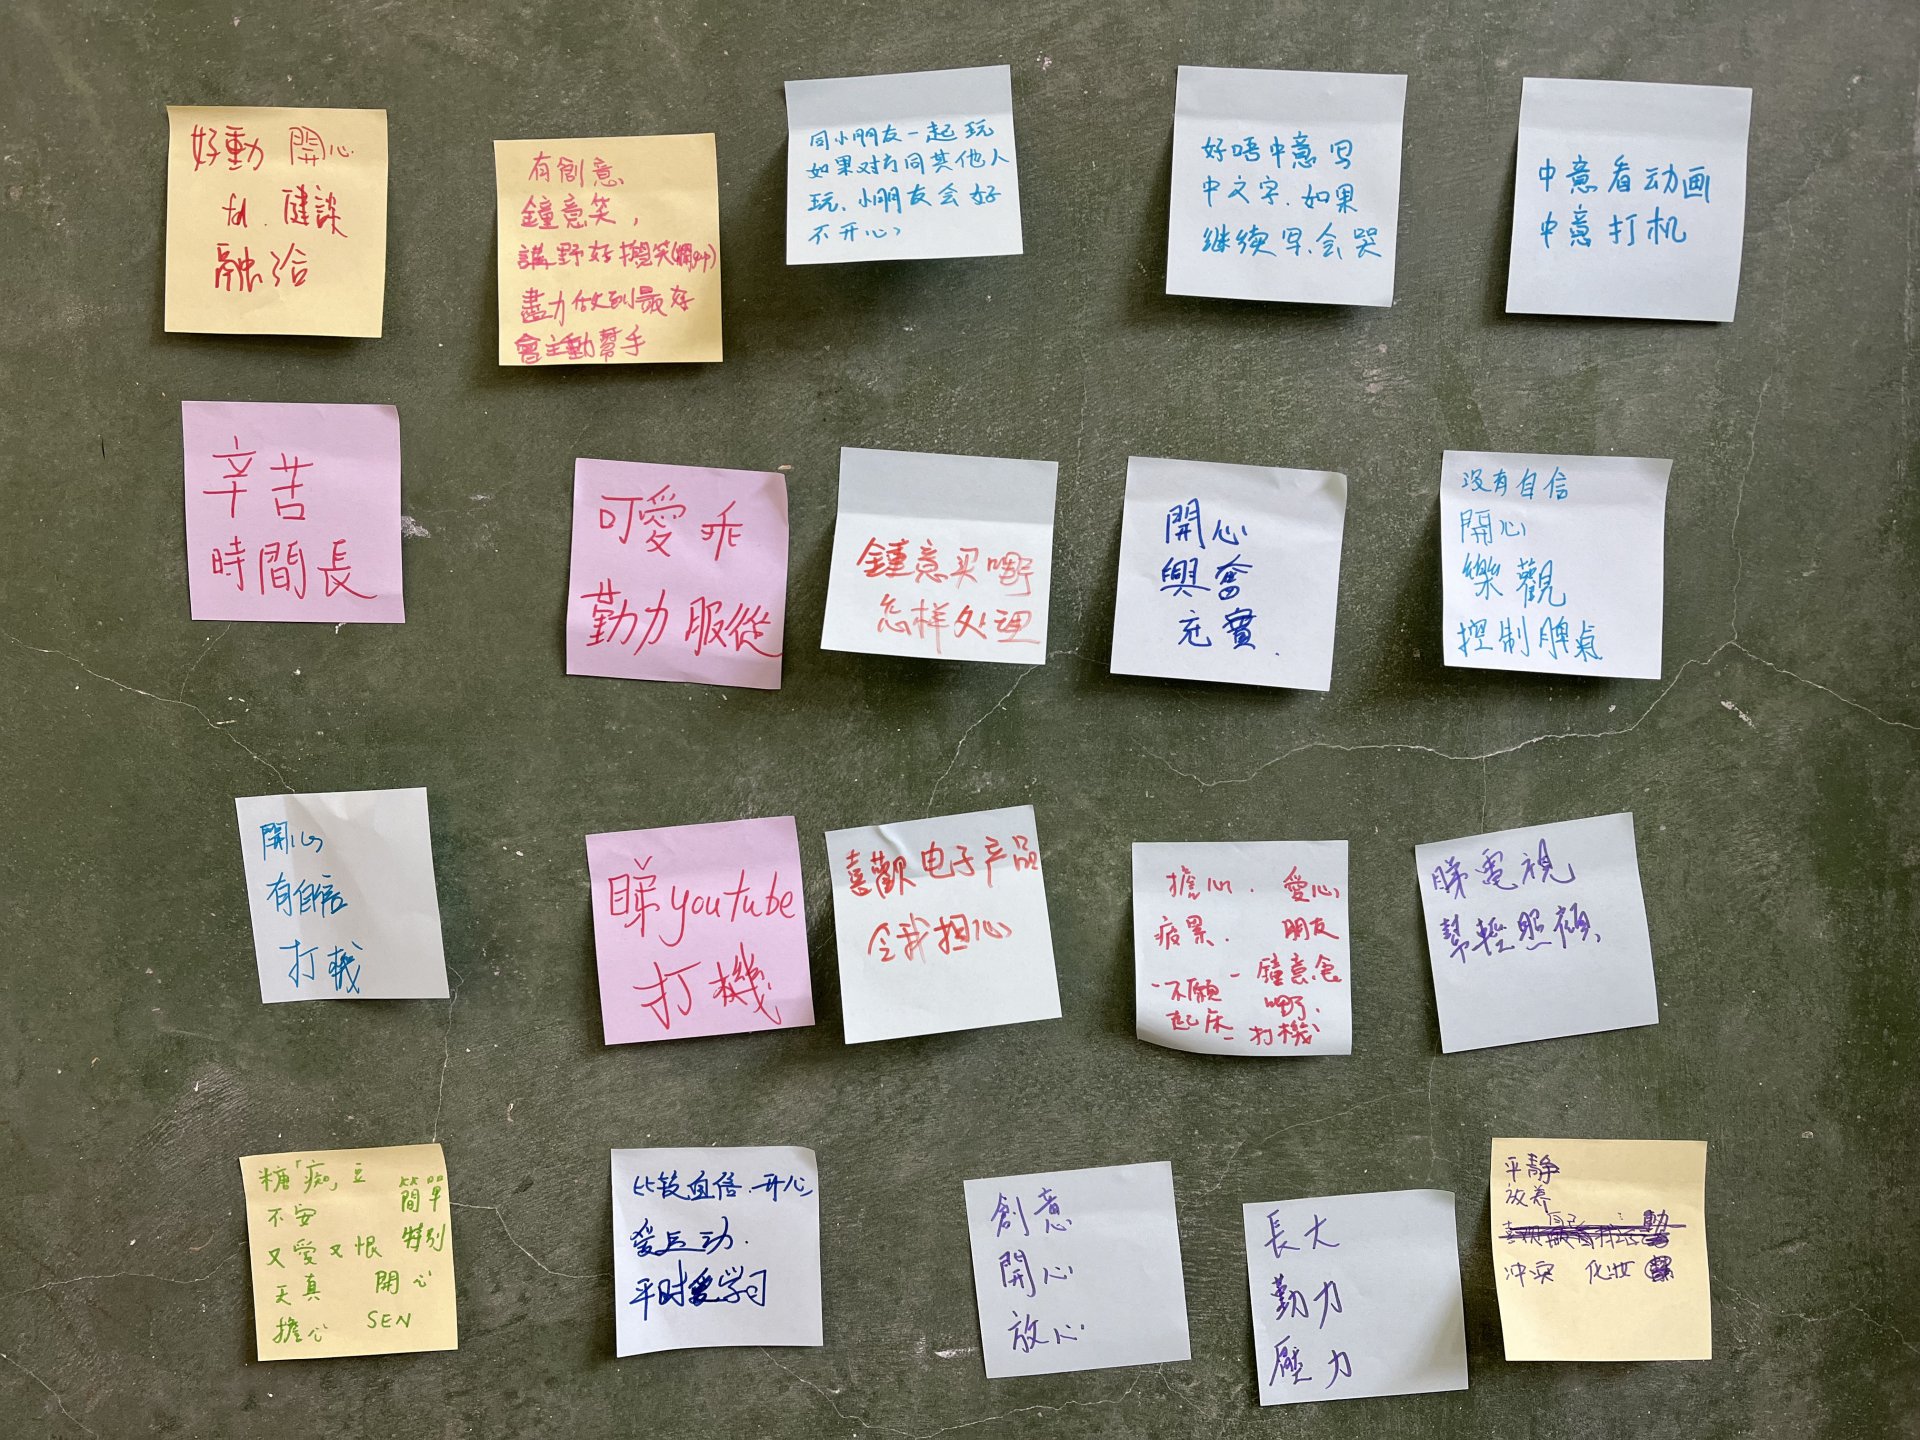 好動 開心
fd. 健談
融洽
有創意、
鐘意笑，
講野好搞笑(爛gag)
盡力做到最好
會主動幫手
同小朋友一起玩
如果对方同其他人
玩、小朋友会好
不开心
好唔中意写
中文字.如果
继续写.会哭
中意看动画
中意打机
辛苦
時間長
可愛 乖
勤力 服從
鐘意买嘢
怎样处理
開心
興奮
充實.
沒有自信
開心
樂觀
控制脾氣
開心
有自信
打機
睇youtube
打機
喜歡电子产品
令我担心
擔心. 愛心
疲累. 朋友
-不願起床
- 鐘意食嘢.
- 打機
睇電視
幫輕照顧
糖「痴」豆
不安
又愛又恨
天真
擔心
簡單
特別
開心
SEN
比较自信.开心
爱运动.
平时爱学习
創意
開心
放心
長大
勤力
壓力
平靜
放養
冲突 化妝